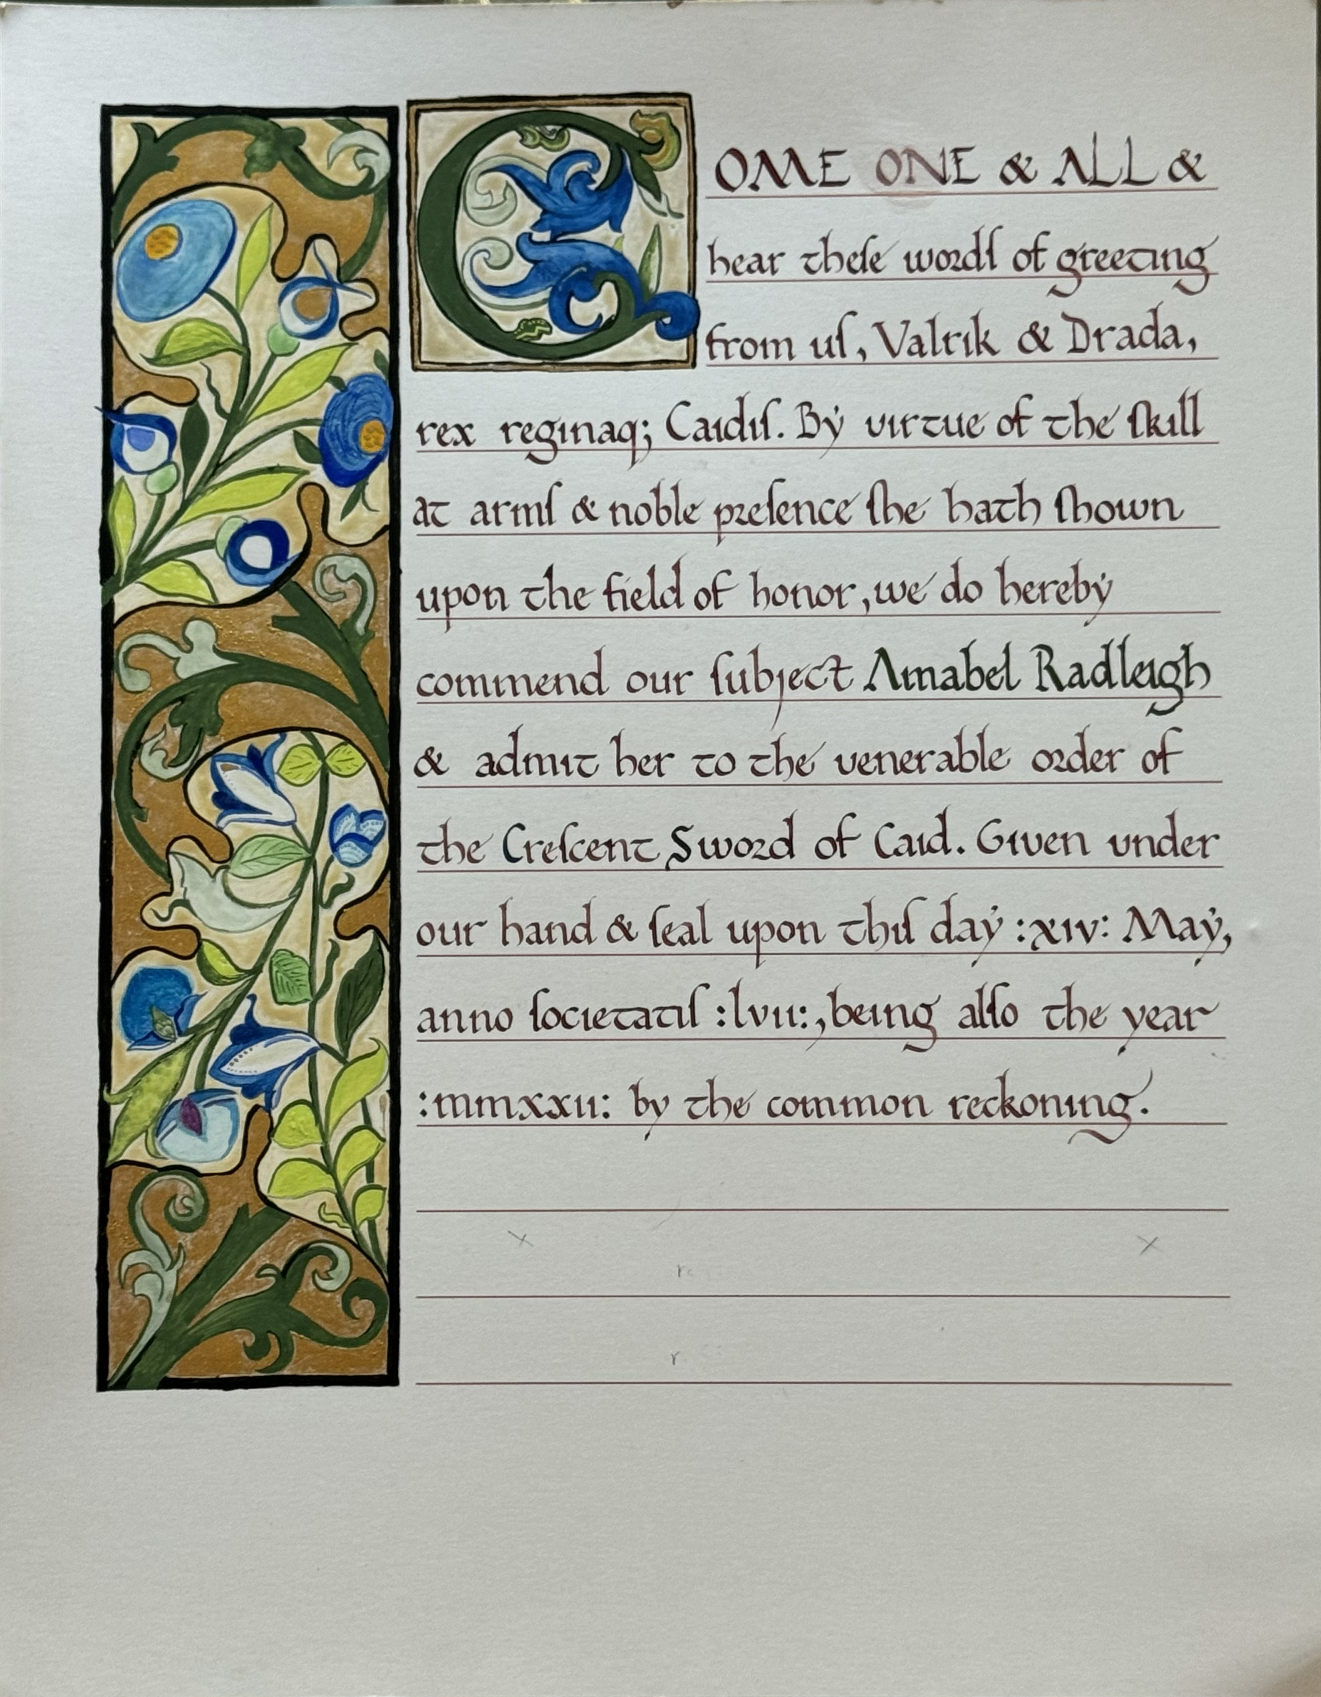 COME ONE & ALL &
hear theſe wordſ of greeting
from uſ, Valrik & Drada,
rex reginaq; Caidiſ. By virtue of the ſkill
at armſ & noble preſence ſhe hath ſhown
upon the field of honor, we do hereby
commend our ſubject Amabel Radleigh
& admit her to the venerable order of
the Creſcent Sword of Caid. Given under
our hand & ſeal upon thiſ day :xiv: May,
anno ſocietatiſ :lvii:, being alſo the year
:mmxxii: by the common reckoning.
x x
r
r